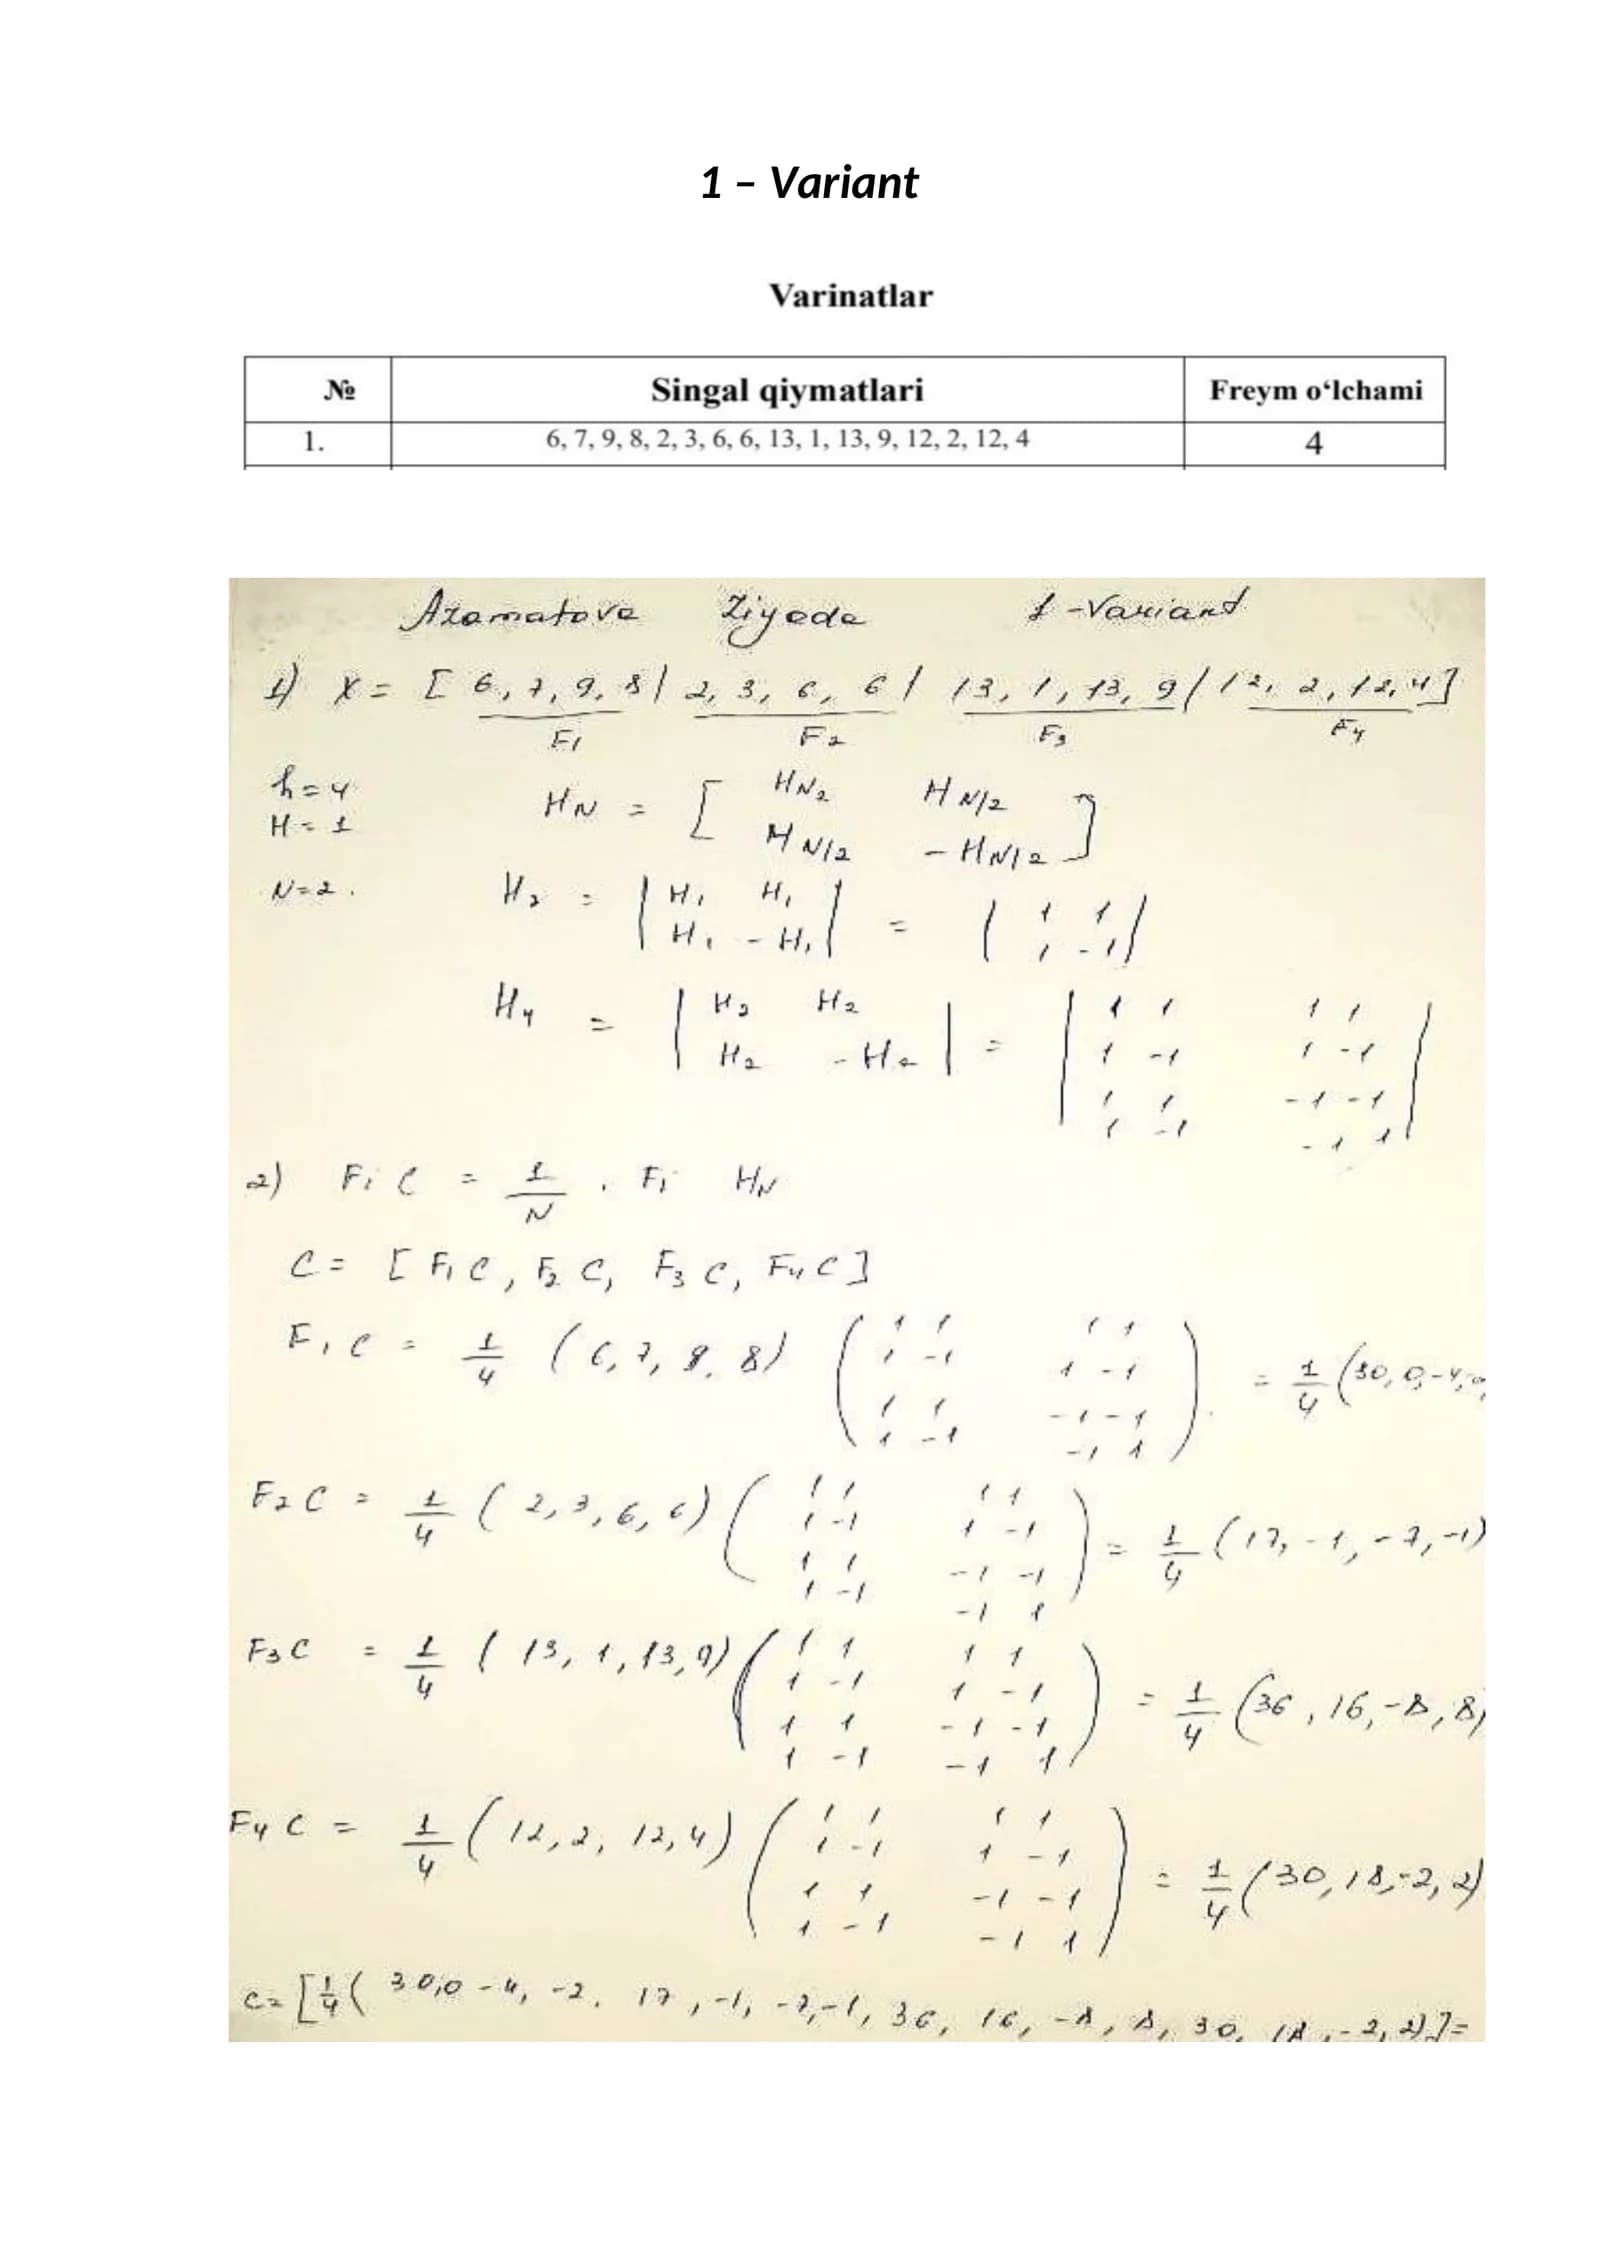 1 – Variant
Varinatlar
№ Singal qiymatlari Freym o‘lchami
1. 6, 7, 9, 8, 2, 3, 6, 6, 13, 1, 13, 9, 12, 2, 12, 4 4
Azamatova Ziyoda 1-Variant
1) X = [ 6, 7, 9, 8 | 2, 3, 6, 6 | 13, 1, 13, 9 | 12, 2, 12, 4 ]
F1 F2 F3 F4
h = 4 HN = [ HN2 HN/2
H = 1 HN/2 - HN/2 ]
N = 2 . H2 = | H1 H1 | = | 1 1 |
H1 - H1 1 -1
H4 = | H2 H2 | = | 1 1 1 1 |
H2 - H2 1 -1 1 -1
1 1 -1 -1
1 -1 -1 1
2) Fi C = 1/N . Fi HN
C = [ F1 C, F2 C, F3 C, F4 C ]
F1 C = 1/4 ( 6, 7, 9, 8 ) ( 1 1 1 1
1 -1 1 -1
1 1 -1 -1
1 -1 -1 1 ) = 1/4 ( 30, 0, -4,
F2 C = 1/4 ( 2, 3, 6, 6 ) ( 1 1 1 1
1 -1 1 -1
1 1 -1 -1
1 -1 -1 1 ) = 1/4 ( 17, -1, -7, -1 )
F3 C = 1/4 ( 13, 1, 13, 9 ) ( 1 1 1 1
1 -1 1 -1
1 1 -1 -1
1 -1 -1 1 ) = 1/4 ( 36, 16, -8, 8 )
F4 C = 1/4 ( 12, 2, 12, 4 ) ( 1 1 1 1
1 -1 1 -1
1 1 -1 -1
1 -1 -1 1 ) = 1/4 ( 30, 18, -2, 2 )
C = [ 1/4 ( 30, 0 -4, -2, 17, -1, -7, -1, 36, 16, -8, 8, 30, 18, -2, 2 ) ] =